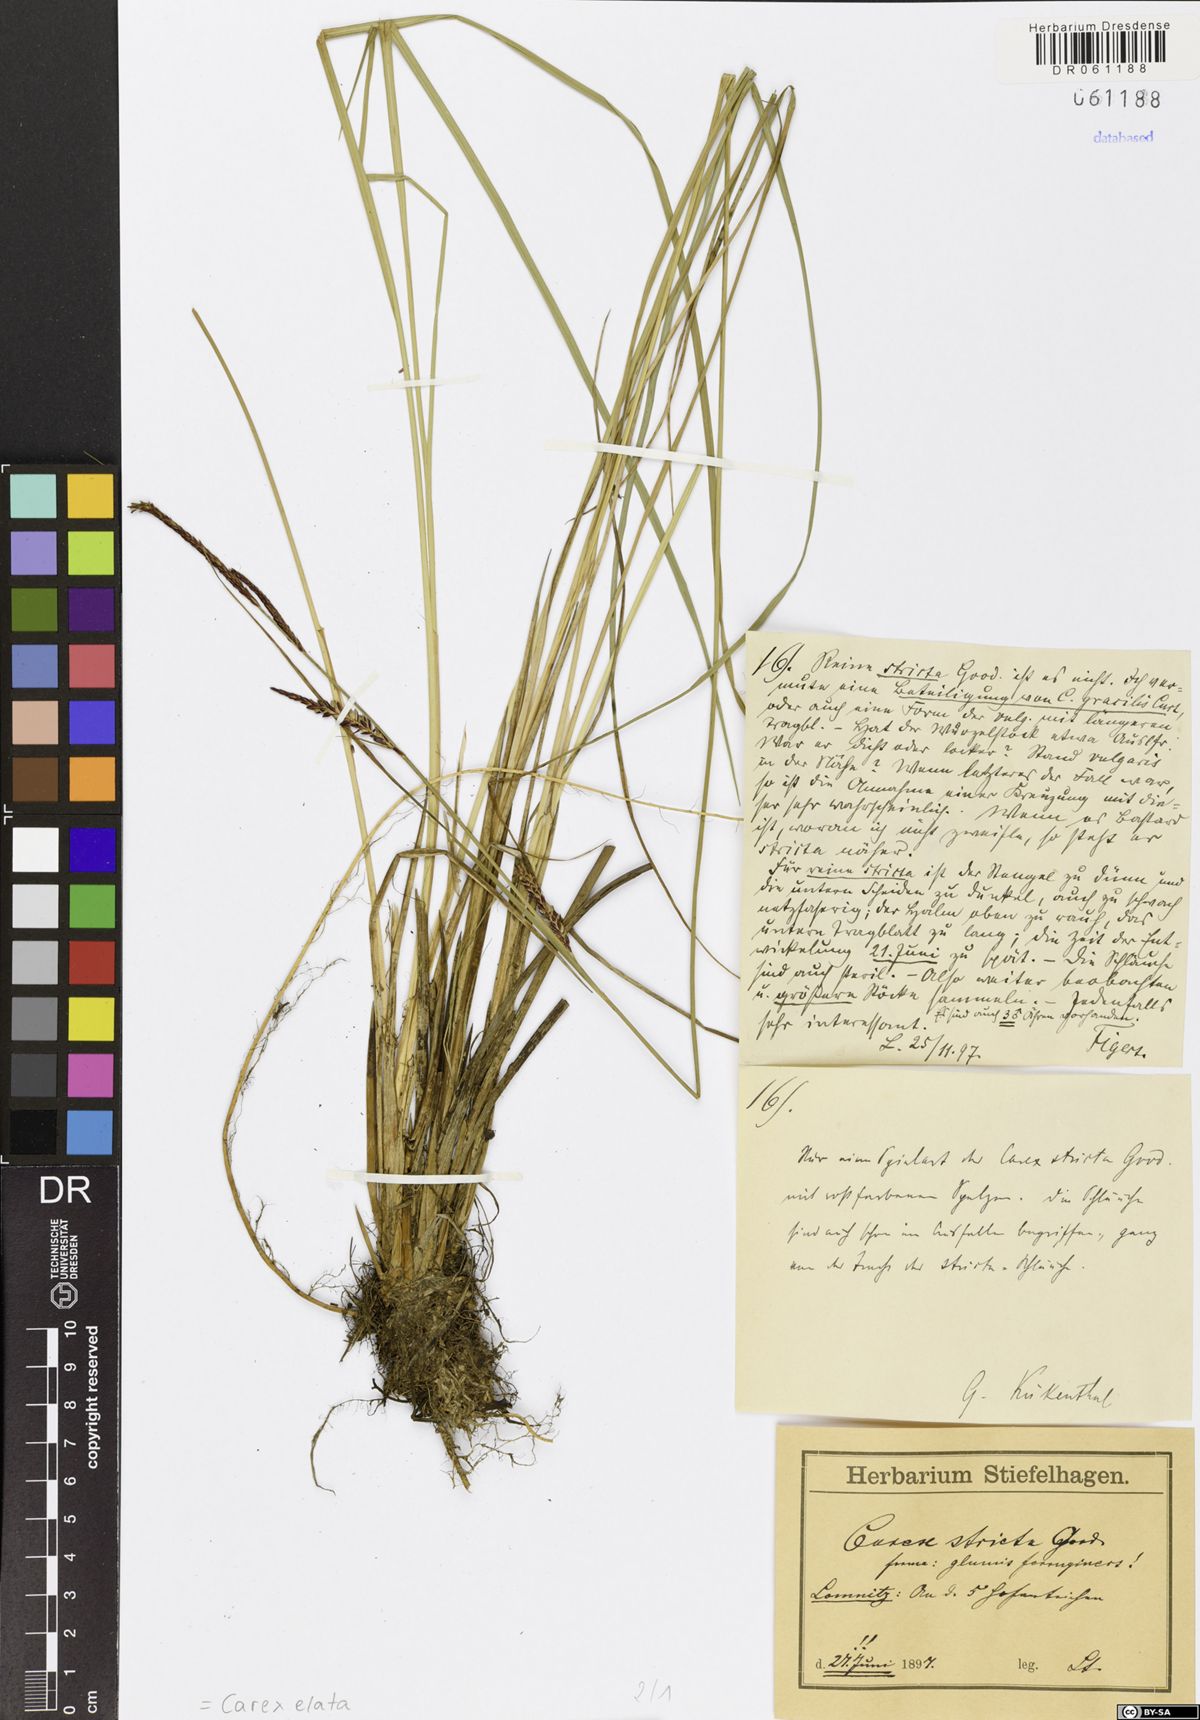 Herbarium Dresdense
DR061188
061188
databased
16). Reine stricta Good. ist es nicht. Ich ver-
mute eine Beteiligung von C. gracilis Curt,
oder auch eine Form der vulg. mit längeren
Tragbl. – Hat der Wurzelstock etwa Ausläufr.
War er dicht oder locker? Stand vulgaris
in der Nähe? Wenn letzteres der Fall war,
so ist die Annahme einer Kreuzung mit die=
ser sehr wahrscheinlich. Wenn es Bastard
ist, woran ich nicht zweifle, so steht er
stricta näher.
Für reine stricta ist der Stengel zu dünn und
die untern Scheiden zu dunkel, auch zu schwach
netzfaserig; der Halm oben zu rauh, das
untere Tragblatt zu lang; die Zeit der Ent=
wickelung 21. Juni zu spät. – Die Schläuche
sind auch steril. – Also weiter beobachten
u. größere Stöcke sammeln. – Jedenfalls
sehr interessant. Es sind auch 35 Ähren vorhanden.
L. 25/11.97. Figert.
16).
Nur eine Spielart der Carex stricta Good.
mit rostfarbenen Spelzen. Die Schläuche
sind auch schon im Ausfallen begriffen, ganz
von der Tracht der stricta-Schläuche.
G. Kükenthal
Herbarium Stiefelhagen.
Carex stricta Good.
forma: glumis ferrugineis!
Lomnitz: An d. 5
!!
d. 27. Juni 1897. leg. St.
= Carex elata
2/1
DR
TECHNISCHE
UNIVERSITÄT
DRESDEN
copyright reserved
10
9
8
7
6
5
4
3
2
1
0
cm
cc BY-SA